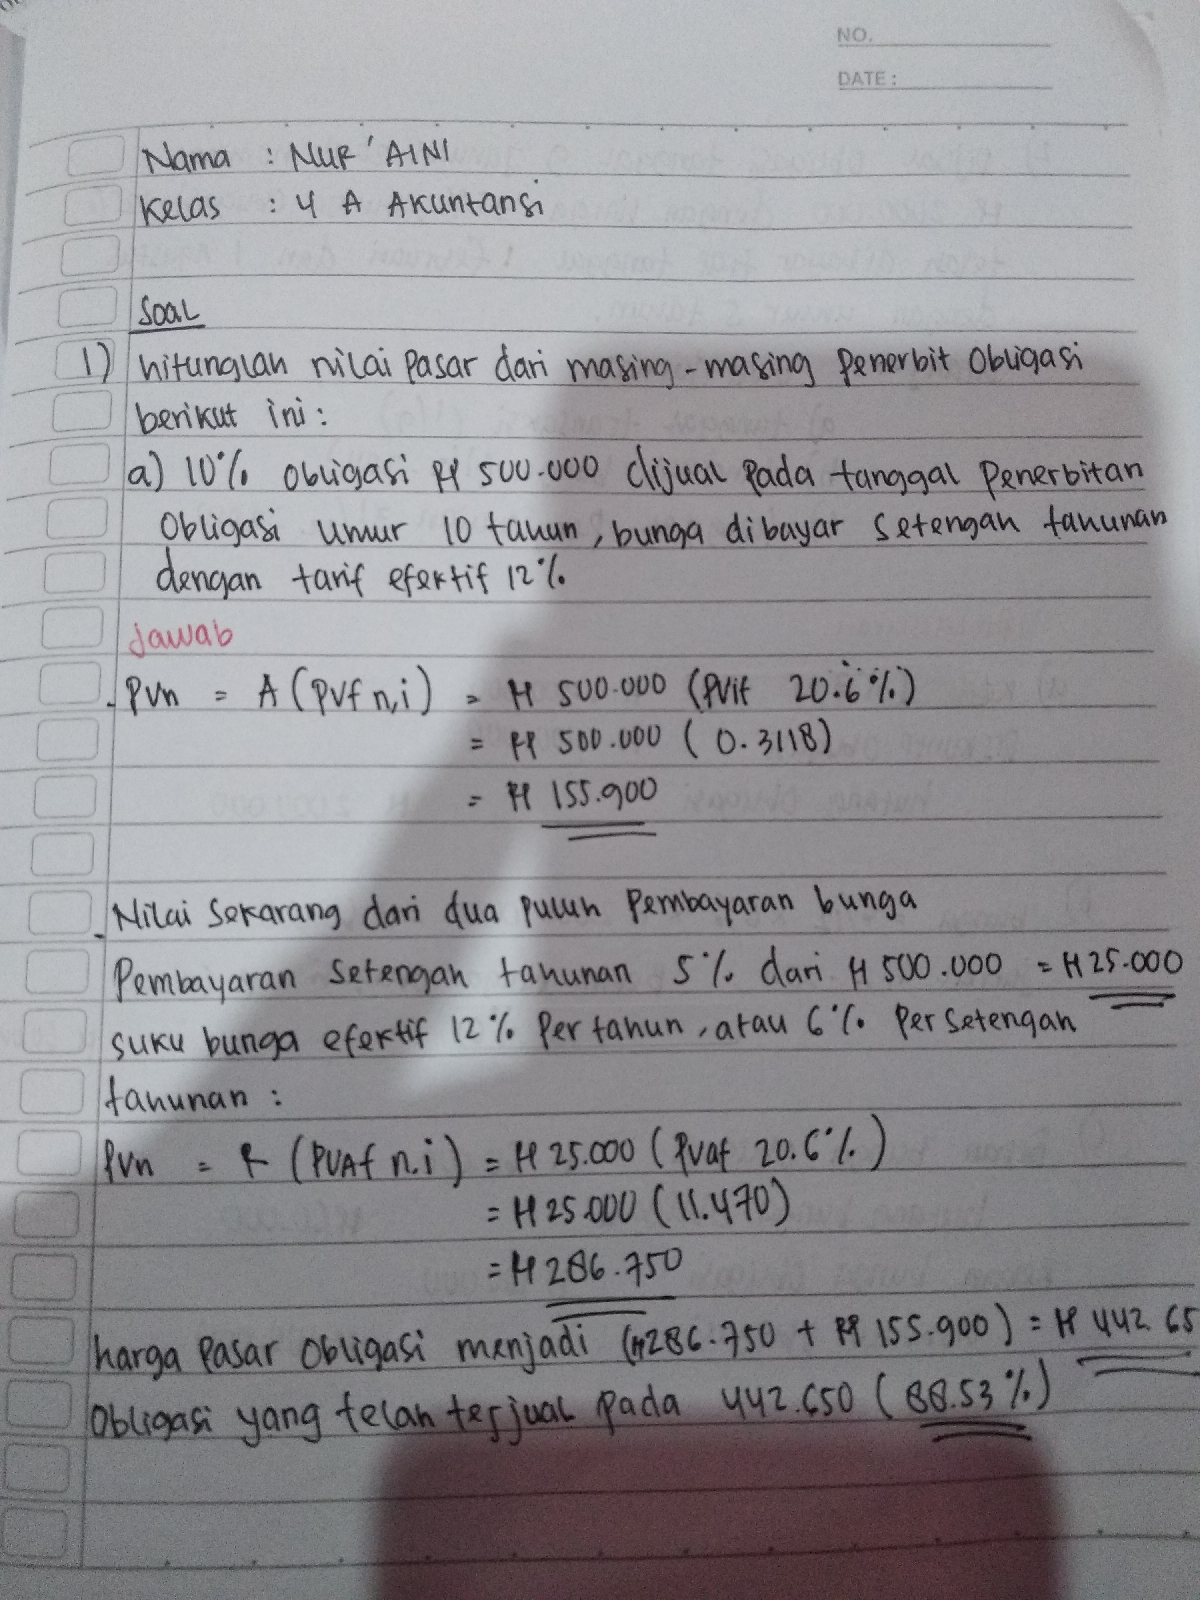 NO.
DATE :
Nama : NUR 'AINI
Kelas : 4 A Akuntansi
Soal
1) hitunglah nilai Pasar dari masing-masing Penerbit Obligasi
berikut ini :
a) 10% Obligasi Rp 500.000 dijual Pada tanggal Penerbitan
Obligasi Umur 10 tahun, bunga dibayar Setengah tahunan
dengan tarif efektif 12%
Jawab
- PVn = A (PVf n,i) = Rp 500.000 (PVif 20.6%)
= Rp 500.000 (0.3118)
= Rp 155.900
- Nilai Sekarang dari dua puluh Pembayaran bunga
Pembayaran Setengah tahunan 5% dari Rp 500.000 = Rp 25.000
suku bunga efektif 12% Per tahun, atau 6% Per setengah
tahunan :
PVn = R (PVAf n.i) = Rp 25.000 (PVaf 20.6%)
= Rp 25.000 (11.470)
= Rp 286.750
harga Pasar Obligasi menjadi (Rp 286.750 + Rp 155.900) = Rp 442.65
Obligasi yang telah terjual Pada 442.650 (88.53%)